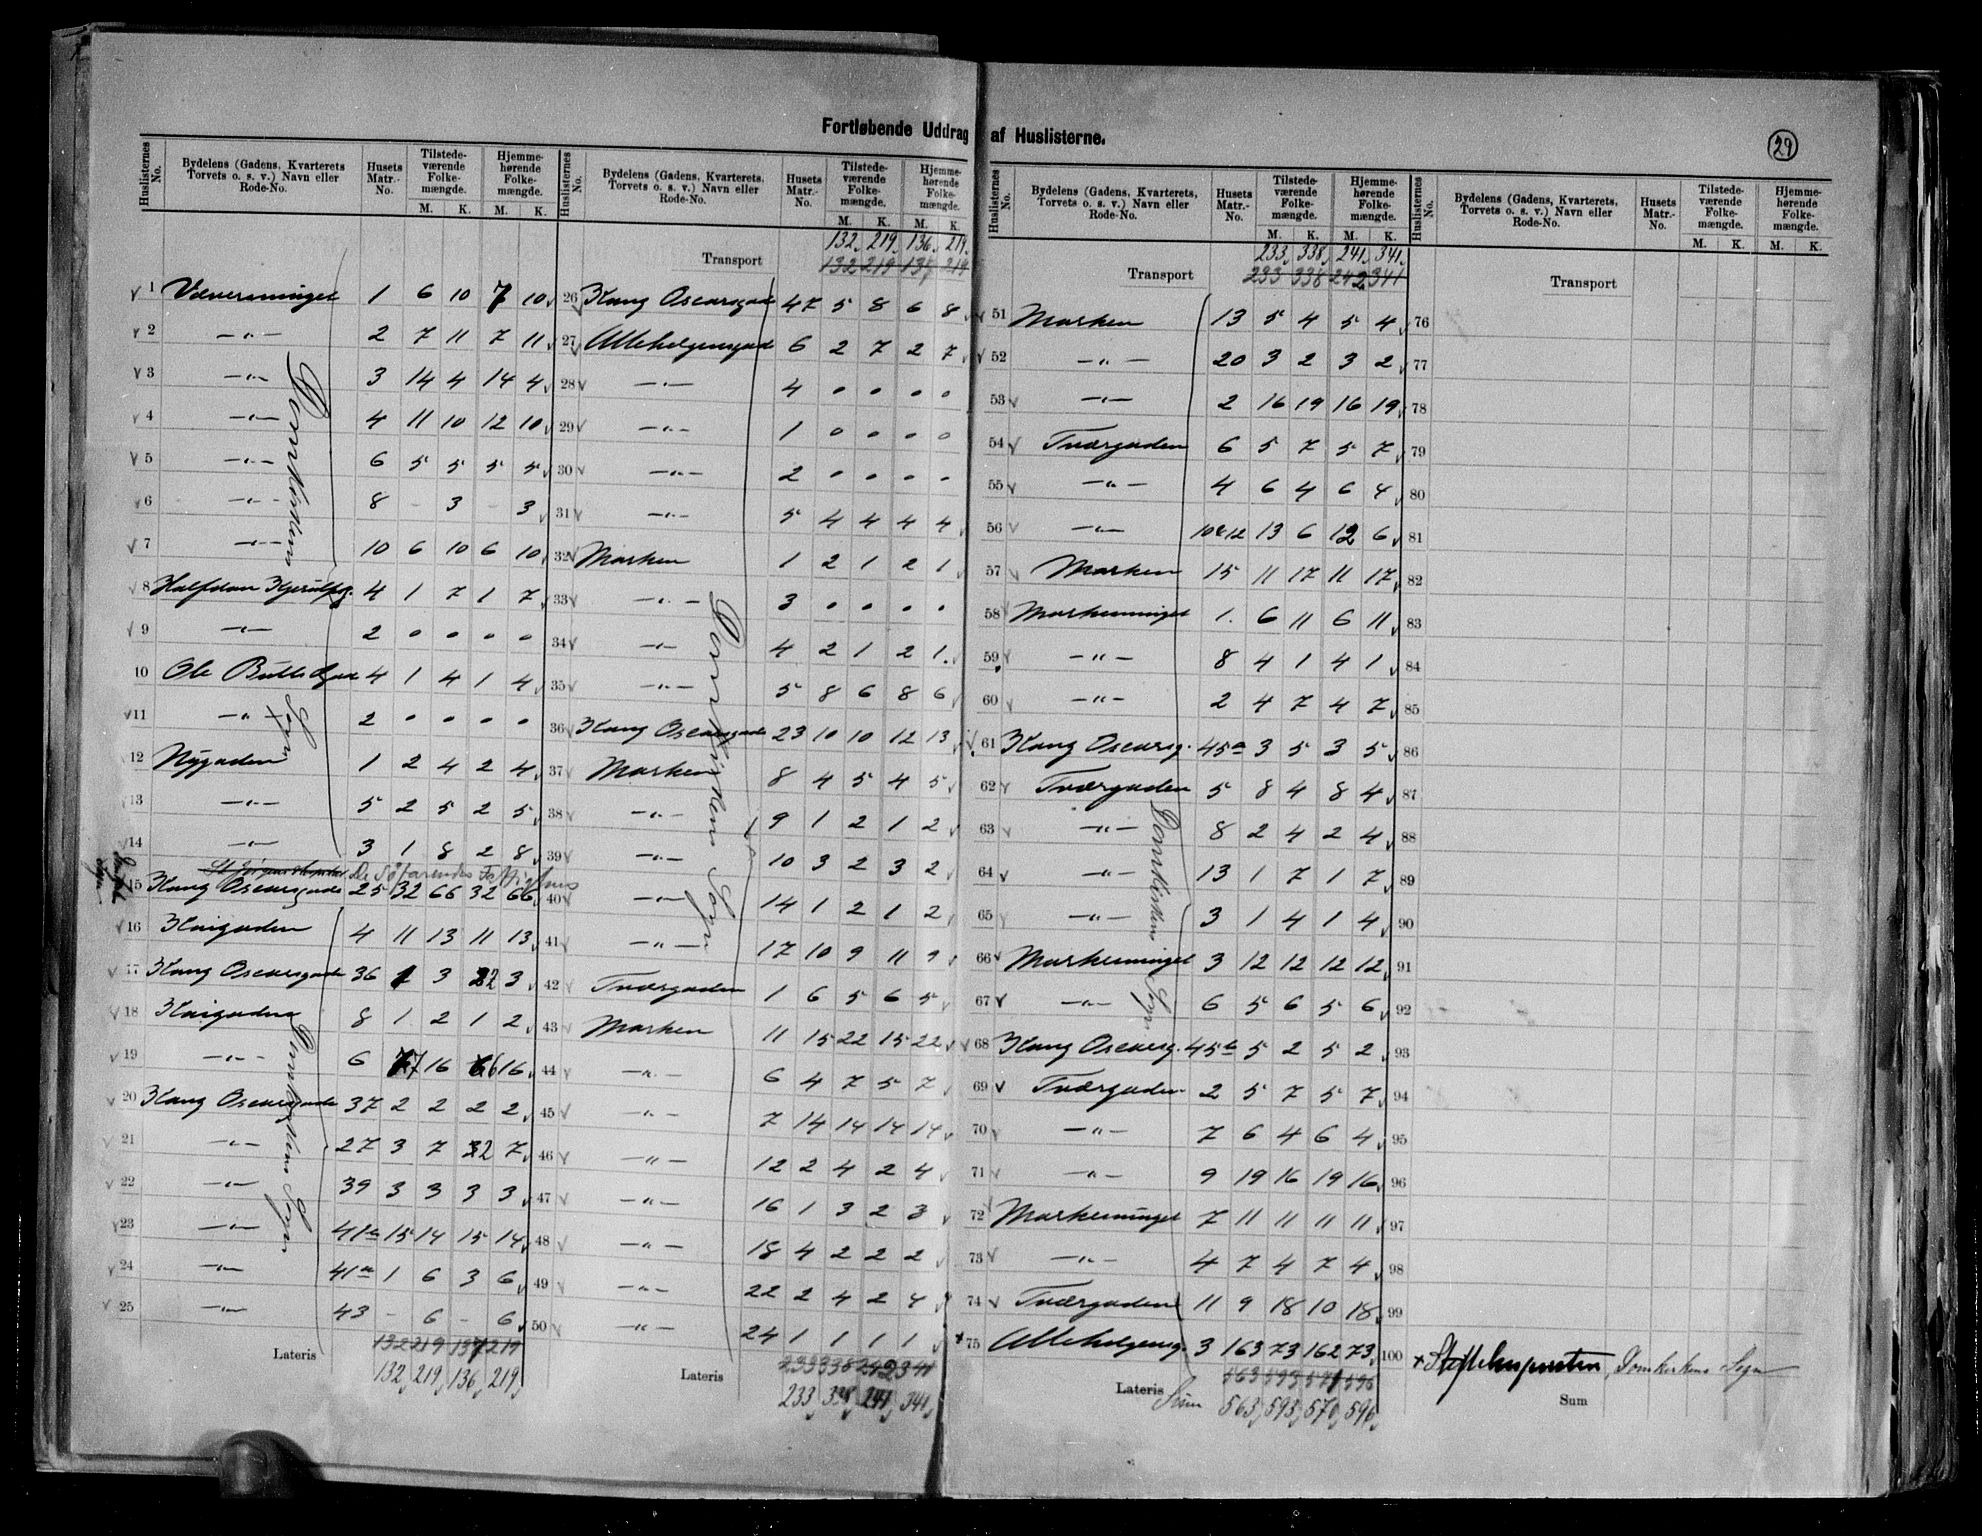 Fortløbende Uddrag af Huslisterne.
29
Huslisternes No. Bydelens (Gadens, Kvarterets Torvets o. s. v.) Navn eller Rode-No. Husets Matr.-No. Tilstedeværende Folkemængde. M. K. Hjemmehørende Folkemængde. M. K.
1 Væversminget 1 6 10 7 10
2 —"— 2 7 11 7 11
3 —"— 3 14 4 14 4
4 —"— 4 11 10 12 10
5 —"— 6 5 5 5 5
6 —"— 8 - 3 - 3
7 —"— 10 6 10 6 10
8 Halfdan Kjerulfsg. 4 1 7 1 7
9 —"— 2 0 0 0 0
10 Ole Bulls Gade 4 1 4 1 4
11 —"— 2 0 0 0 0
12 Nygaden 1 2 4 2 4
13 —"— 5 2 5 2 5
14 —"— 3 1 8 2 8
De Söfarendes Fattighus
15 Kong Oscarsgade 25 32 66 32 66
16 Kaigaden 4 11 13 11 13
17 Kong Oscarsgade 36 1 3 2 3
18 Kaigaden 8 1 2 1 2
19 —"— 6 7 16 6 16
20 Kong Oscarsgade 37 2 2 2 2
21 —"— 27 3 7 2 7
22 —"— 39 3 3 3 3
23 —"— 41 15 14 15 14
24 —"— 41a 1 6 3 6
25 —"— 43 - 6 - 6
Domkirkens Sogn
Domkirkens Sogn
Lateris 132 219 137 219
132 219 136 219
Huslisternes No. Bydelens (Gadens, Kvarterets, Torvets o. s. v.) Navn eller Rode-No. Husets Matr.-No. Tilstedeværende Folkemængde. M. K. Hjemmehørende Folkemængde. M. K.
132 219 136 219
Transport 132 219 137 219
26 Kong Oscarsgade 47 5 8 6 8
27 Allehelgensgade 6 2 7 2 7
28 —"— 4 0 0 0 0
29 —"— 1 0 0 0 0
30 —"— 2 0 0 0 0
31 —"— 5 4 4 4 4
32 Marken 1 2 1 2 1
33 —"— 3 0 0 0 0
34 —"— 4 2 1 2 1
35 —"— 5 8 6 8 6
36 Kong Oscarsgade 23 10 10 12 13
37 Marken 8 4 5 4 5
38 —"— 9 1 2 1 2
39 —"— 10 3 2 3 2
40 —"— 14 1 2 1 2
41 —"— 17 10 9 11 9
42 Tværgaden 1 6 5 6 5
43 Marken 11 15 22 15 22
44 —"— 6 4 7 5 7
45 —"— 7 14 14 14 14
46 —"— 12 2 4 2 4
47 —"— 16 1 3 2 3
48 —"— 18 4 2 2 2
49 —"— 22 2 4 2 4
50 —"— 24 1 1 1 1
Domkirkens Sogn
Lateris 233 338 242 341
233 338 241 341
Huslisternes No. Bydelens (Gadens, Kvarterets, Torvets o. s. v.) Navn eller Rode-No. Husets Matr.-No. Tilstedeværende Folkemængde. M. K. Hjemmehørende Folkemængde. M. K.
233 338 241 341
Transport 233 338 242 341
51 Marken 13 5 4 5 4
52 —"— 20 3 2 3 2
53 —"— 2 16 19 16 19
54 Tværgaden 6 5 7 5 7
55 —"— 4 6 4 6 4
56 —"— 10&12 13 6 12 6
57 Marken 15 11 17 11 17
58 Markeminget 1 6 11 6 11
59 —"— 8 4 1 4 1
60 —"— 2 4 7 4 7
61 Kong Oscarsg. 45a 3 5 3 5
62 Tværgaden 5 8 4 8 4
63 —"— 8 2 4 2 4
64 —"— 13 1 7 1 7
65 —"— 3 1 4 1 4
66 Markeminget 3 12 12 12 12
67 —"— 6 5 6 5 6
68 Kong Oscarsg. 45b 5 2 5 2
69 Tværgaden 2 5 7 5 7
70 —"— 7 6 4 6 4
71 —"— 9 19 16 19 16
72 Markeminget 7 11 11 11 11
73 —"— 4 7 4 7 4
74 Tværgaden 11 9 18 10 18
× 75 Allehelgensg. 3 163 73 162 73
Domkirkens Sogn
Lateris 563 593 571 596
Sum 563 593 570 596
Huslisternes No. Bydelens (Gadens, Kvarterets, Torvets o. s. v.) Navn eller Rode-No. Husets Matr.-No. Tilstedeværende Folkemængde. M. K. Hjemmehørende Folkemængde. M. K.
Transport
76
77
78
79
80
81
82
83
84
85
86
87
88
89
90
91
92
93
94
95
96
97
98
99
100 × Domkirkens Sogn
Sum